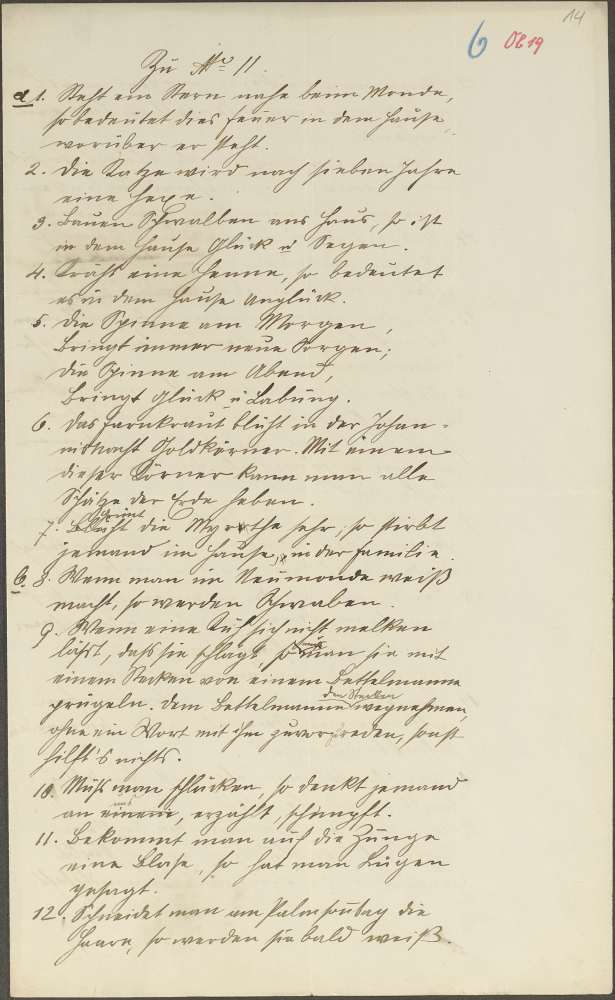 14
6 OE 19
Zu No 11
a 1. Steht ein Stern nahe beim Monde,
so bedeutet dies Feuer in dem Hause,
worüber er steht.
2. Die Katze wird nach sieben Jahren
eine Hexe.
3. Bauen Schwalben ans Haus, so ist
in dem Hause Glück u Segen.
4. Kräht eine Henne, so bedeutet
es in dem Hause Unglück.
5. Die Spinne am Morgen,
bringt immer neue Sorgen;
die Spinne am Abend,
bringt Glück u Labung.
6. Das Farnkraut blüht in der Johan-
nisnacht Goldkörner. Mit einem
dieser Körner kann man alle
Schätze der Erde heben.
7. Blüht die Myrthe sehr, so stirbt
jemand im Hause, in der Familie.
b. 8. Wenn man im Neumonde weiß
macht, so werden Schwaben.
9. Wenn eine Kuh sich nicht melken
läßt, daß sie schlägt, so muß man sie mit
einem Stecken von einem Bettelmanne
prügeln. Dem Bettelmanne den Stecken wegnehmen,
ohne ein Wort mit ihm zuvor reden, sonst
hilft's nichts.
10. Muß man schlucken, so denkt jemand
an uns, erzählt, schimpft.
11. Bekommt man auf die Zunge
eine Blase, so hat man Lügen
gesagt.
12. Schneidet man am Palmsonntag die
Haare, so werden sie bald weiß.